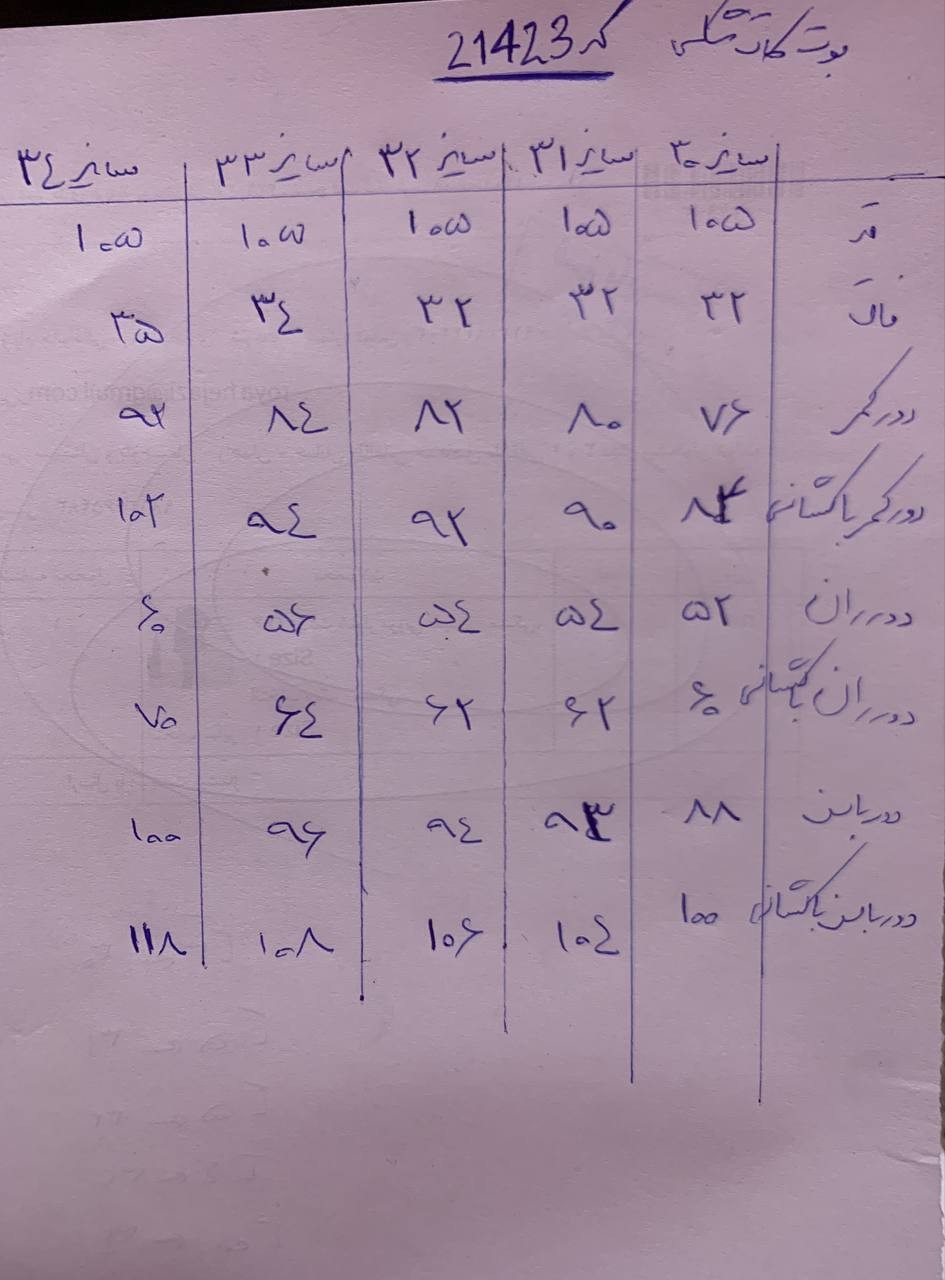 بوت کات مشکی کد 21423
سایز ۳۰ سایز ۳۱ سایز ۳۲ سایز ۳۳ سایز ۳٤
قد ۱۰۵ ۱۰۵ ۱۰۵ ۱۰۵ ۱۰۵
فاق ۳۲ ۳۲ ۳۲ ۳٤ ۳۵
دور کمر ۷۶ ۸۰ ۸۲ ۸٤ ۹۲
دور کمر با کشسانی ۸۴ ۹۰ ۹۲ ۹٤ ۱۰۲
دور ران ۵۲ ۵٤ ۵٤ ۵۶ ۶۰
دور ران با کشسانی ۶۰ ۶۲ ۶۲ ۶٤ ۷۰
دور باسن ۸۸ ۹۳ ۹٤ ۹۶ ۱۰۰
دور باسن با کشسانی ۱۰۰ ۱۰٤ ۱۰۶ ۱۰۸ ۱۱۸